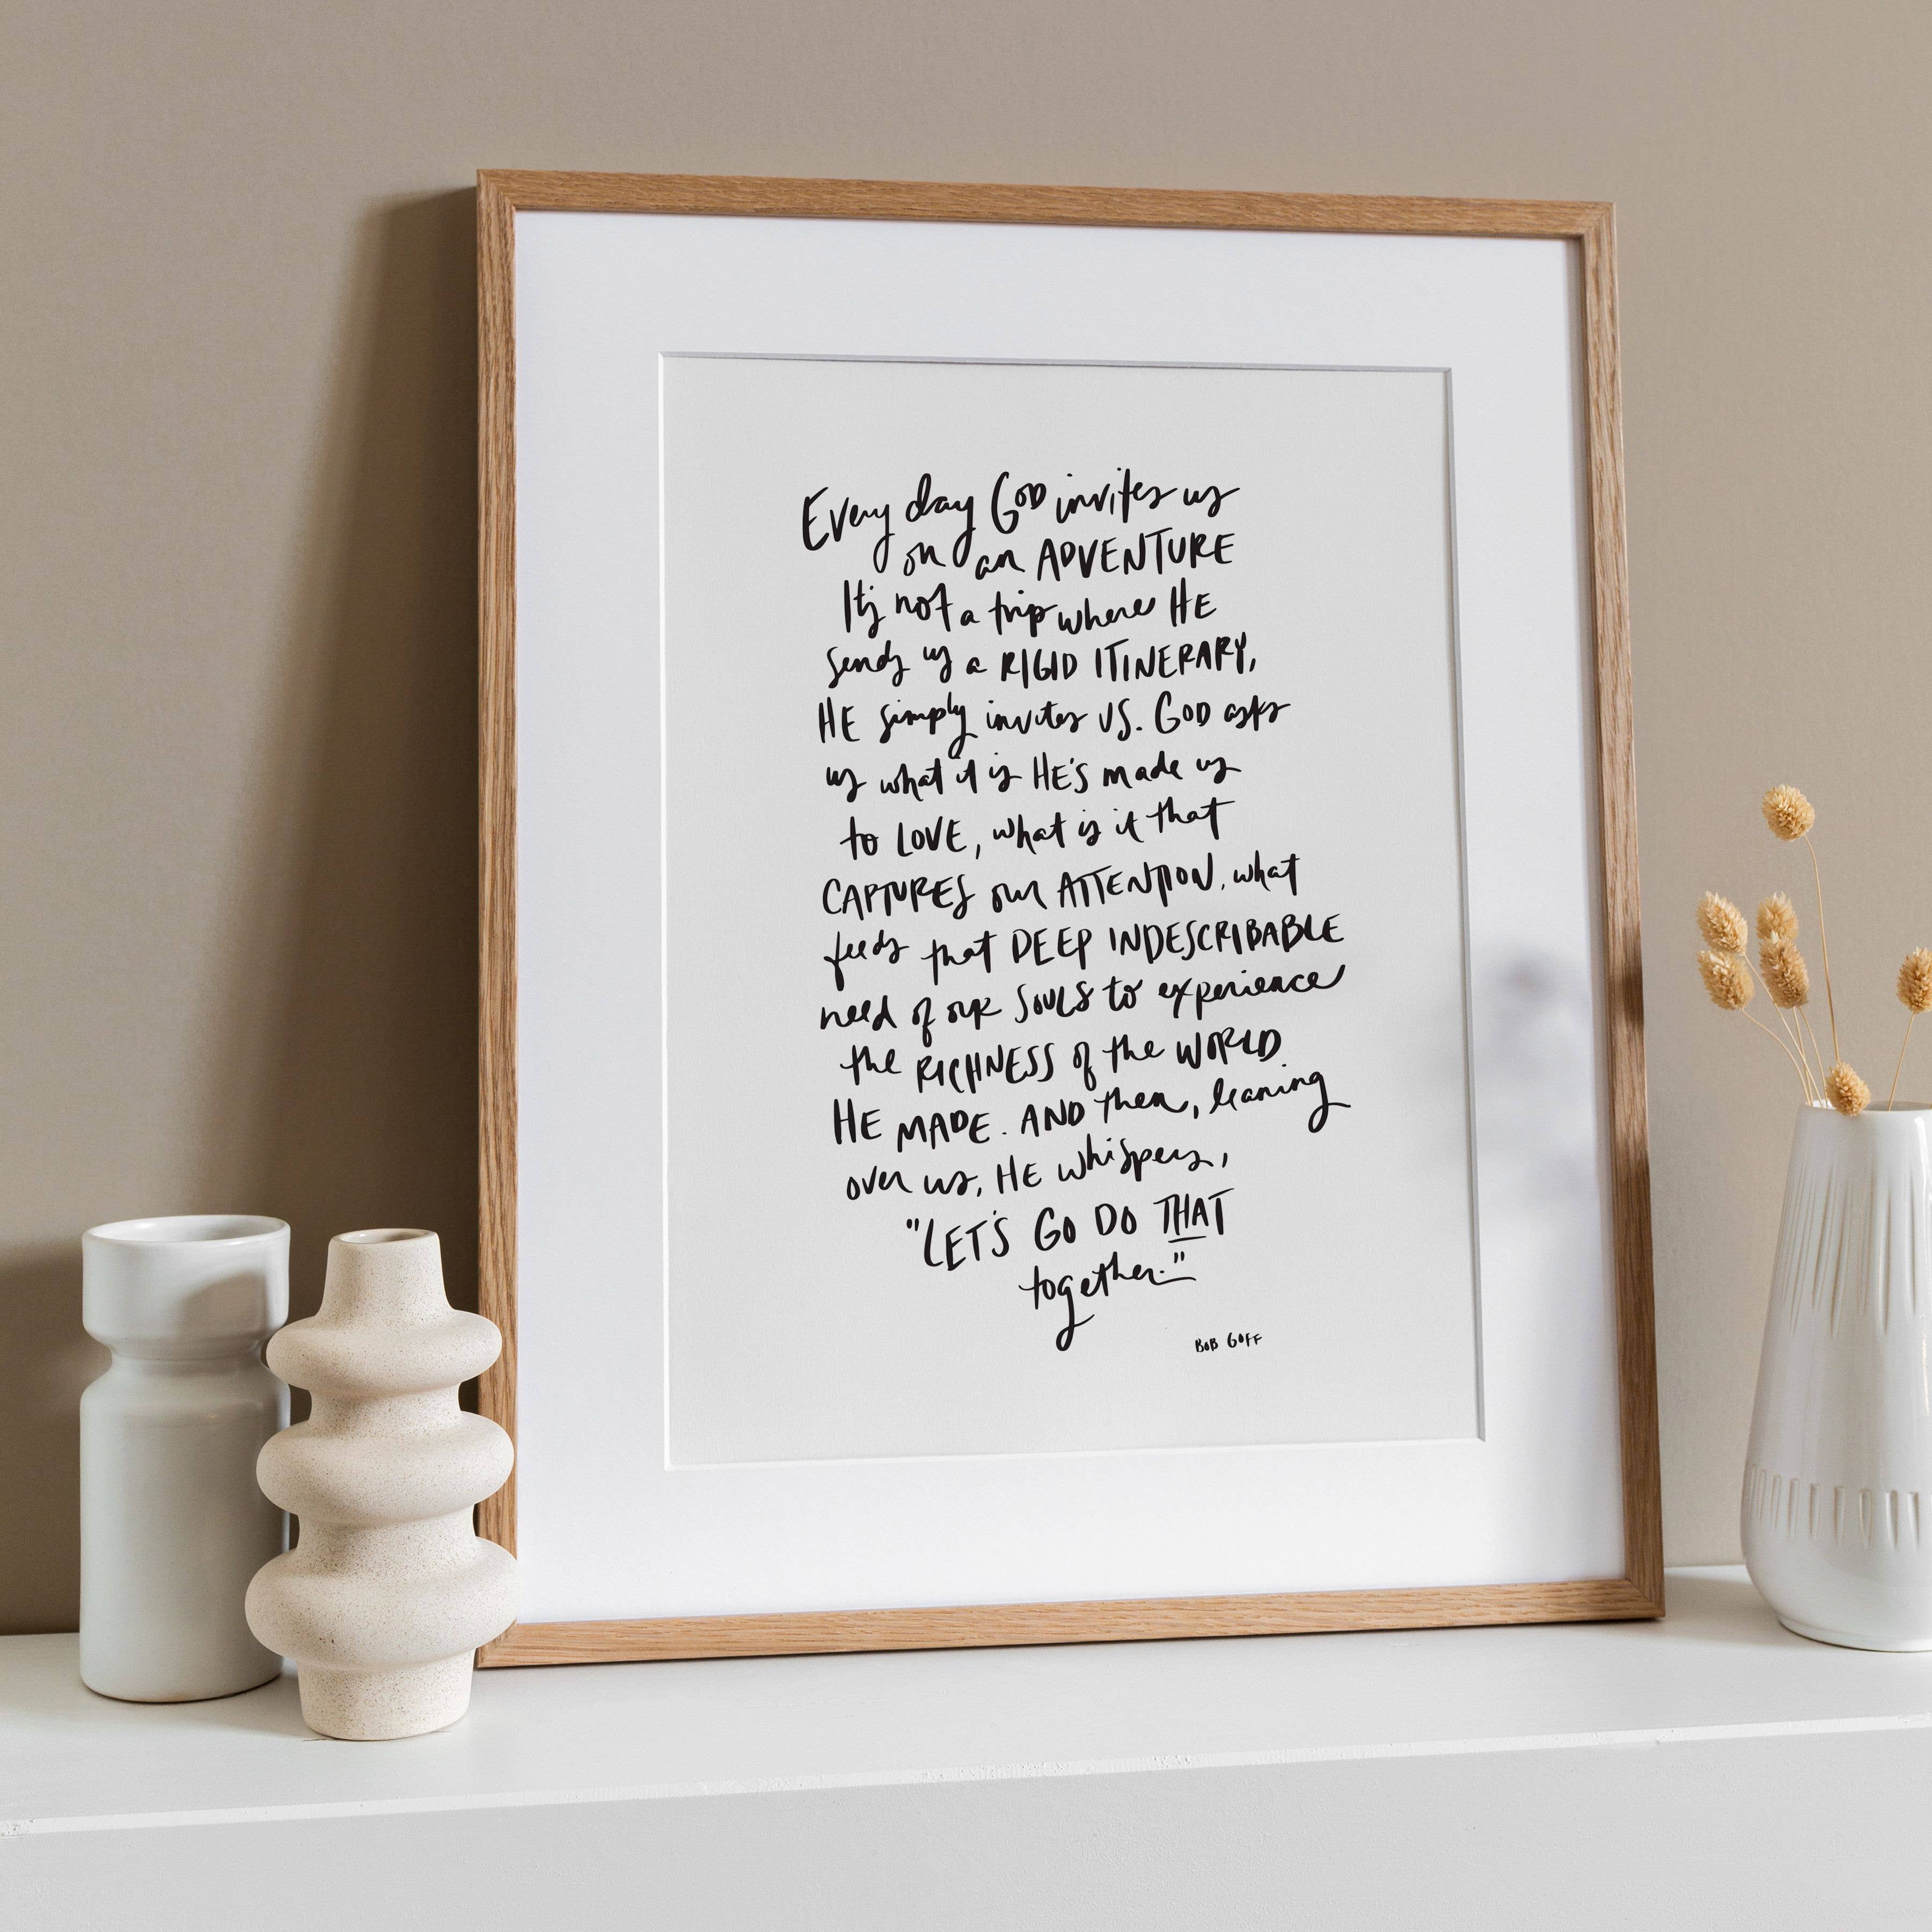 Every day GOD invites us
on an ADVENTURE
It's not a trip where HE
sends us a RIGID ITINERARY,
HE simply invites US. GOD asks
us what it is HE'S made us
to LOVE, what is it that
CAPTURES our ATTENTION, what
feeds that DEEP INDESCRIBABLE
need of our SOULS to experience
the RICHNESS of the WORLD
HE MADE. AND then, leaning
over us, HE whispers,
"LET'S GO DO THAT
together."
BOB GOFF